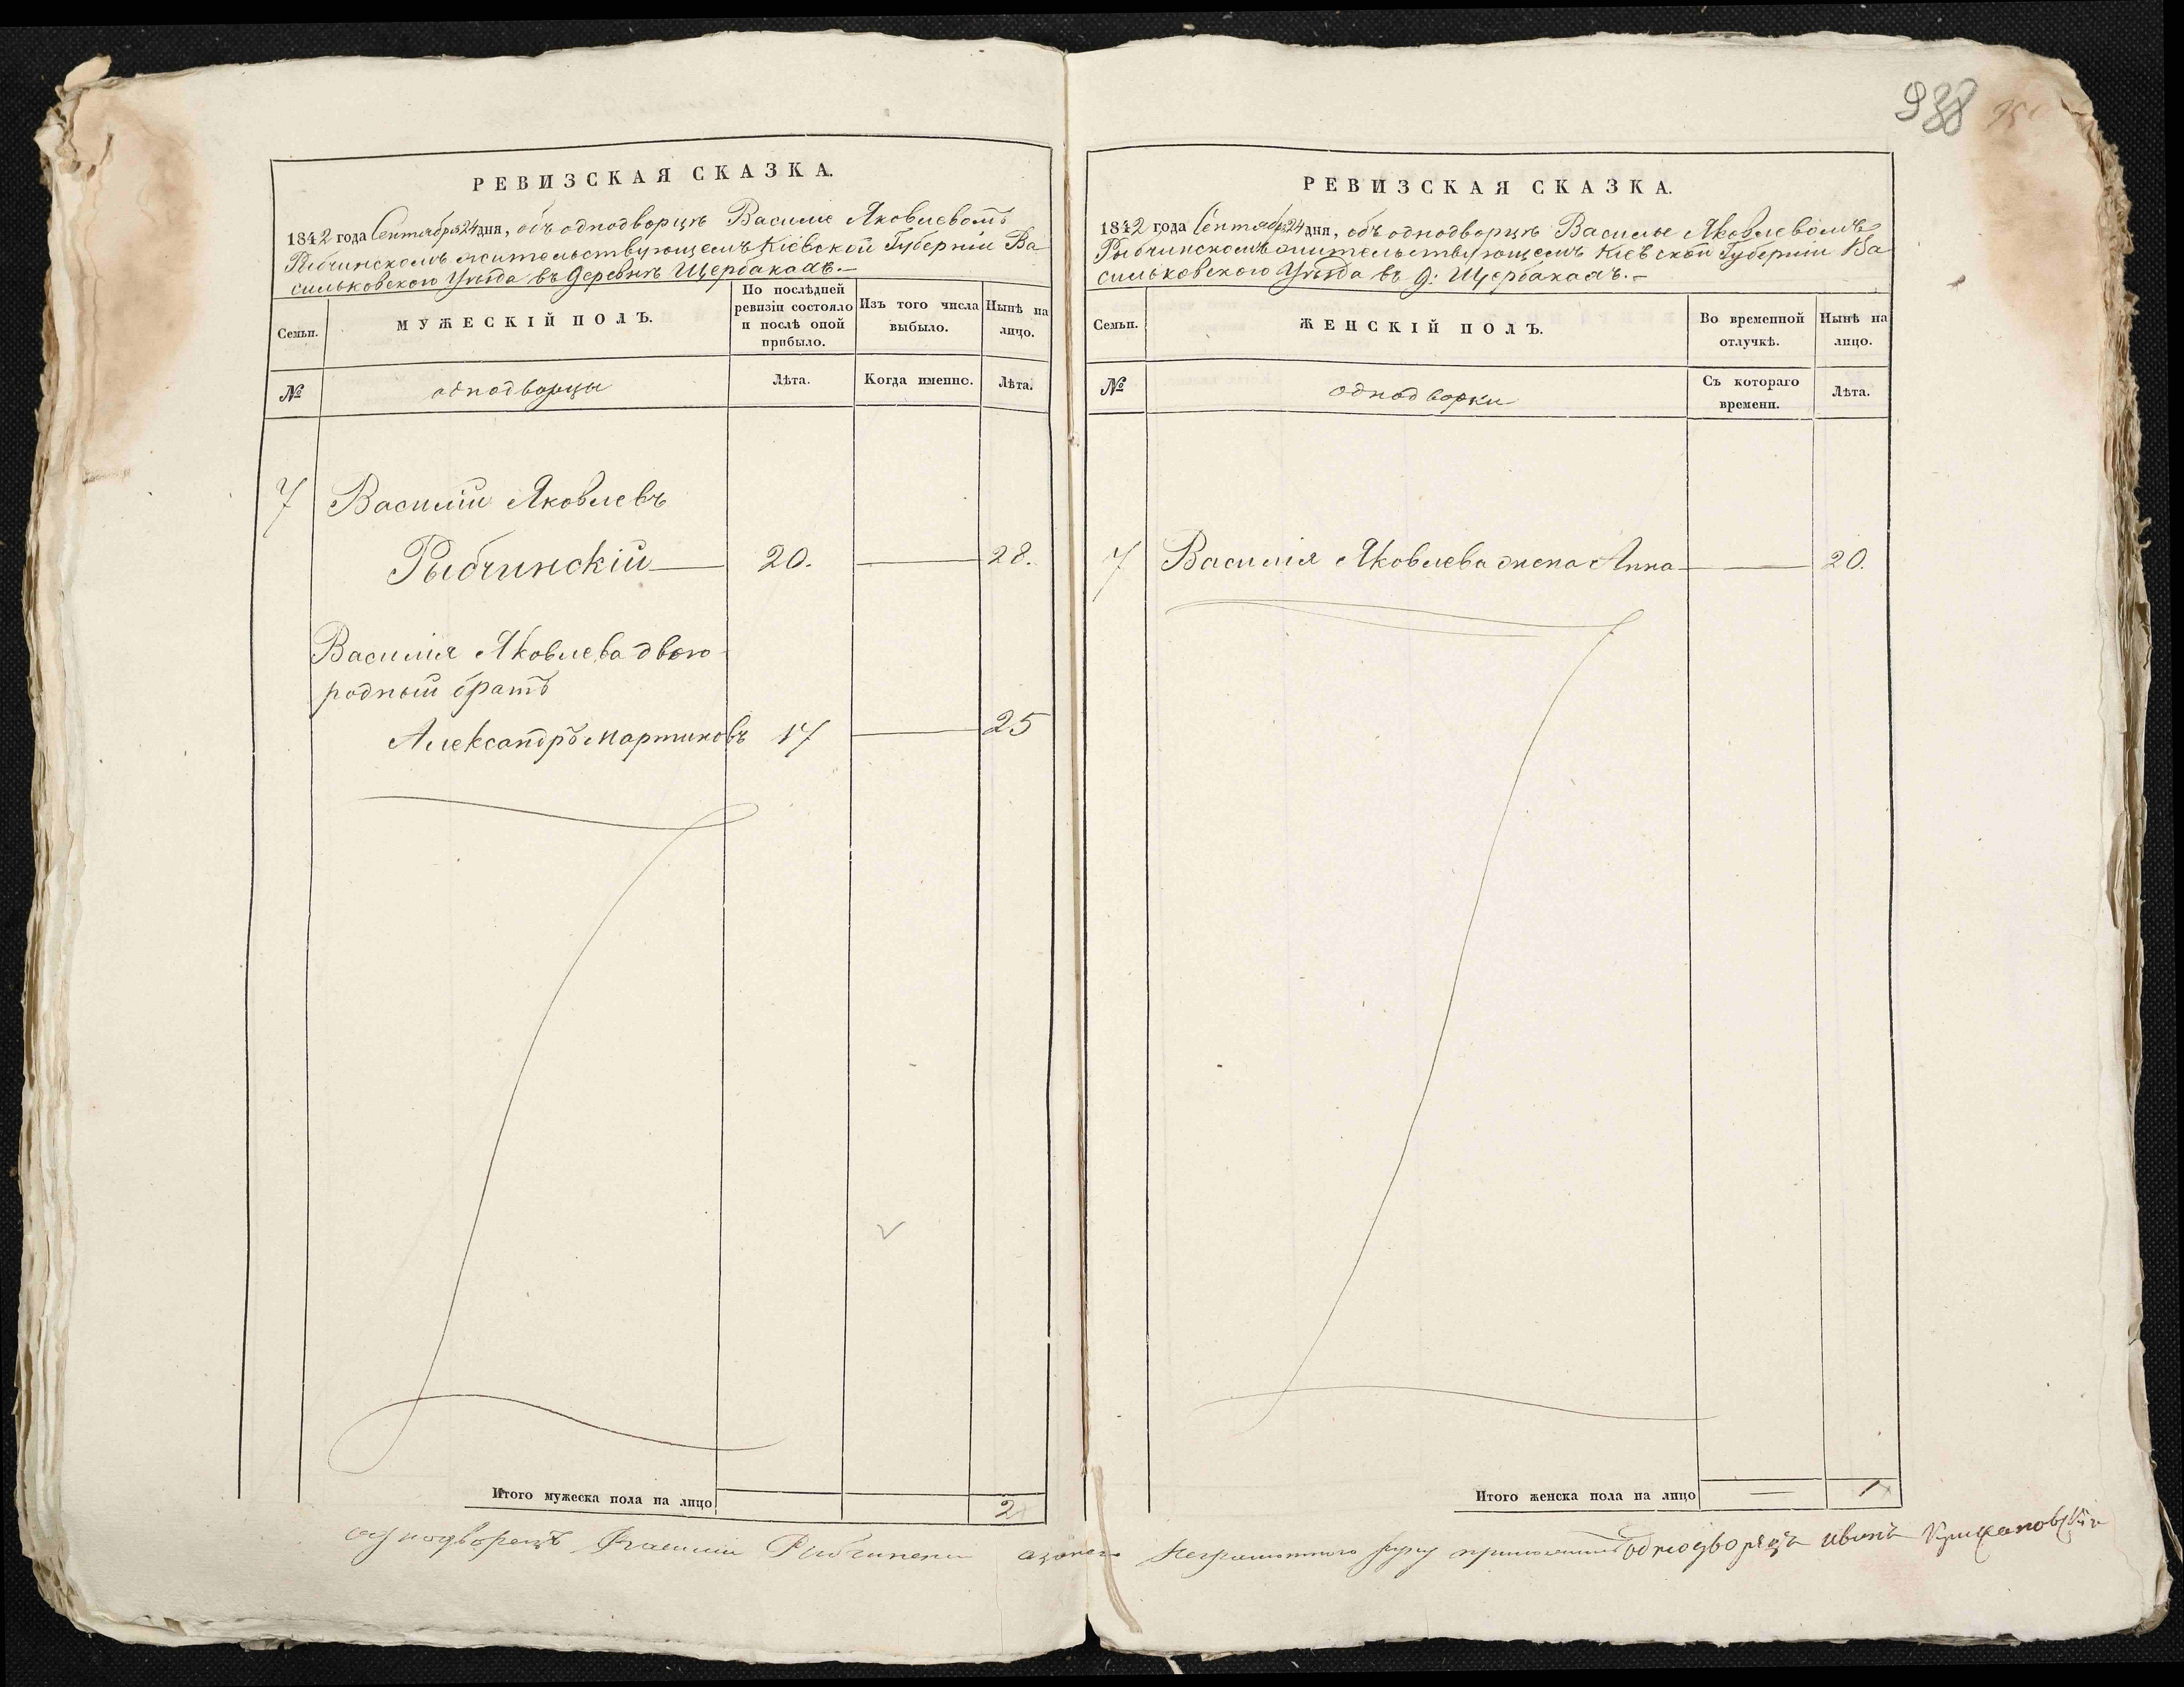 938
РЕВИЗСКАЯ СКАЗКА.
1842 года Сентября 24 дня, объ однодворцѣ Василіе Яковлевомъ
Рыбчинскомъ жительствующемъ Кіевской Губерніи Ва
сильковского Уѣзда въ деревнѣ Щербакахъ.—
Семьи.
МУЖЕСКІЙ ПОЛЪ.
По послѣдней
ревизіи состояло
и послѣ оной
прибыло.
Изъ того числа
выбыло.
Нынѣ на
лицо.
№
однодворцы
Лѣта.
Когда именно.
Лѣта.
7 Василій Яковлевъ
Рыбчинскій — 20. — 28.
Василія Яковлева двою
родный братъ
Александръ Мартиновъ 17 — 25
Итого мужеска пола на лицо 2
РЕВИЗСКАЯ СКАЗКА.
1842 года Сентября 24 дня, объ однодворцѣ Василье Яковлевомъ
Рыбчинскомъ жительствующемъ Кіевской Губерніи Ва
сильковского Уѣзда въ д: Щербакахъ.—
Семьи.
ЖЕНСКІЙ ПОЛЪ.
Во временной
отлучкѣ.
Нынѣ на
лицо.
№
однодворки
Съ котораго
времени.
Лѣта.
7 Василія Яковлева жена Анна — 20.
Итого женска пола на лицо — 1
однодворецъ Василий Рибчински а занего неграмотного руку приложилъ однодворецъ иванъ